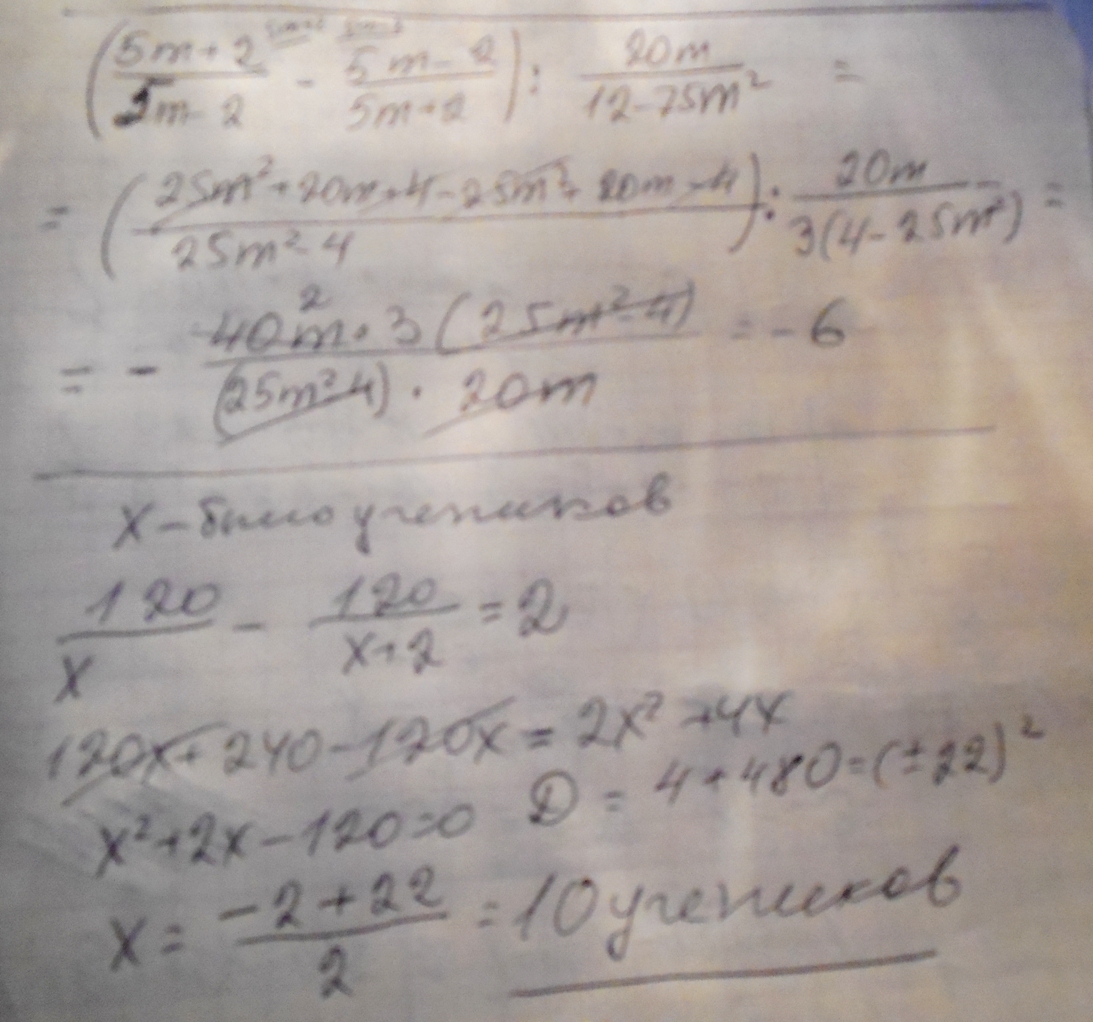 (5m+2/5m-2 - 5m-2/5m+2) : 20m/12-75m² =
= (25m²+20m+4-25m²+20m-4/25m²-4) : 20m/3(4-25m²) =
= - 40m·3(25m²-4)/(25m²-4)·20m = -6
x - было учеников
120/x - 120/x+2 = 2
120x+240-120x=2x²+4x
x²+2x-120=0 D = 4+480=(±22)²
x = -2+22/2 = 10 учеников